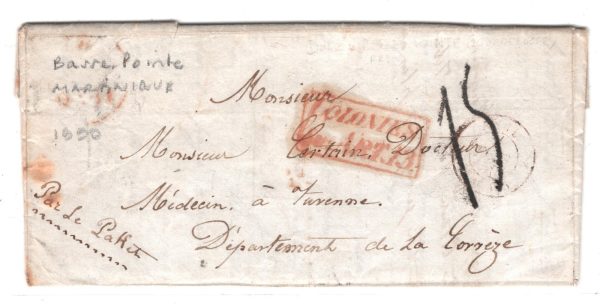 Basse Pointe
MARTINIQUE
1850
Monsieur
COLONIES
ART.13.
15
Monsieur Certain, Docteur
Médecin. à Turenne.
Département de La Corrèze
Par Le Pakket